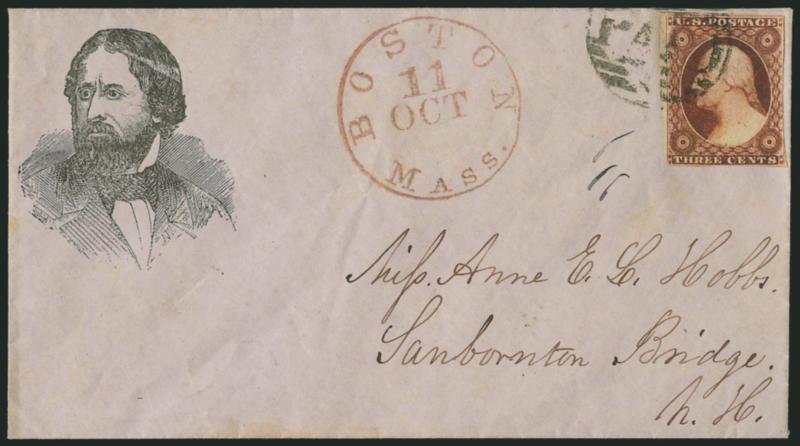 BOSTON
11
OCT
MASS.
U.S. POSTAGE
THREE CENTS
Miss. Anne E. L. Hobbs.
Sanbornton Bridge.
N. H.